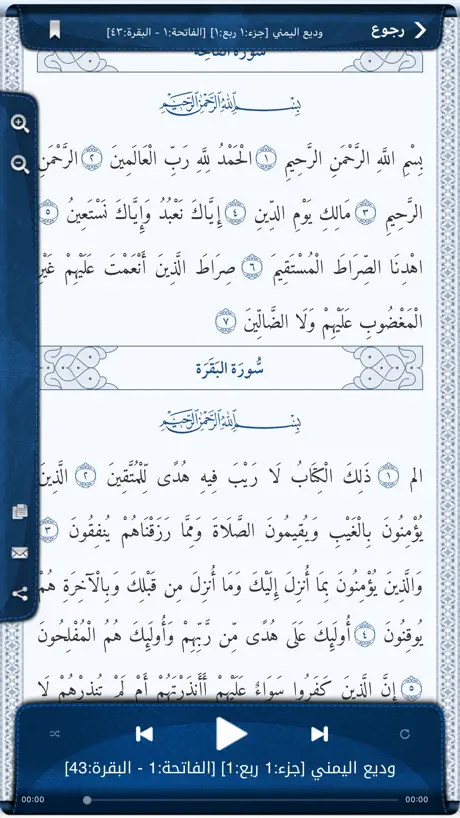 رجوع
وديع اليمني [جزء:١ ربع:١] [الفاتحة:١ - البقرة:٤٣]
سورة الفاتحة
بِسْمِ اللَّهِ الرَّحْمَٰنِ الرَّحِيمِ
بِسْمِ اللَّهِ الرَّحْمَٰنِ الرَّحِيمِ ١ الْحَمْدُ لِلَّهِ رَبِّ الْعَالَمِينَ ٢ الرَّحْمَٰنِ
الرَّحِيمِ ٣ مَالِكِ يَوْمِ الدِّينِ ٤ إِيَّاكَ نَعْبُدُ وَإِيَّاكَ نَسْتَعِينُ ٥
اهْدِنَا الصِّرَاطَ الْمُسْتَقِيمَ ٦ صِرَاطَ الَّذِينَ أَنْعَمْتَ عَلَيْهِمْ غَيْرِ
الْمَغْضُوبِ عَلَيْهِمْ وَلَا الضَّالِّينَ ٧
سُّورَة البَقَرَة
بِسْمِ اللَّهِ الرَّحْمَٰنِ الرَّحِيمِ
الم ١ ذَٰلِكَ الْكِتَابُ لَا رَيْبَ فِيهِ هُدًى لِّلْمُتَّقِينَ ٢ الَّذِينَ
يُؤْمِنُونَ بِالْغَيْبِ وَيُقِيمُونَ الصَّلَاةَ وَمِمَّا رَزَقْنَاهُمْ يُنفِقُونَ ٣
وَالَّذِينَ يُؤْمِنُونَ بِمَا أُنزِلَ إِلَيْكَ وَمَا أُنزِلَ مِن قَبْلِكَ وَبِالْآخِرَةِ هُمْ
يُوقِنُونَ ٤ أُولَٰئِكَ عَلَىٰ هُدًى مِّن رَّبِّهِمْ وَأُولَٰئِكَ هُمُ الْمُفْلِحُونَ
٥ إِنَّ الَّذِينَ كَفَرُوا سَوَاءٌ عَلَيْهِمْ أَأَنذَرْتَهُمْ أَمْ لَمْ تُنذِرْهُمْ لَا
وديع اليمني [جزء:1 ربع:1] [الفاتحة:1 - البقرة:43]
00:00 00:00